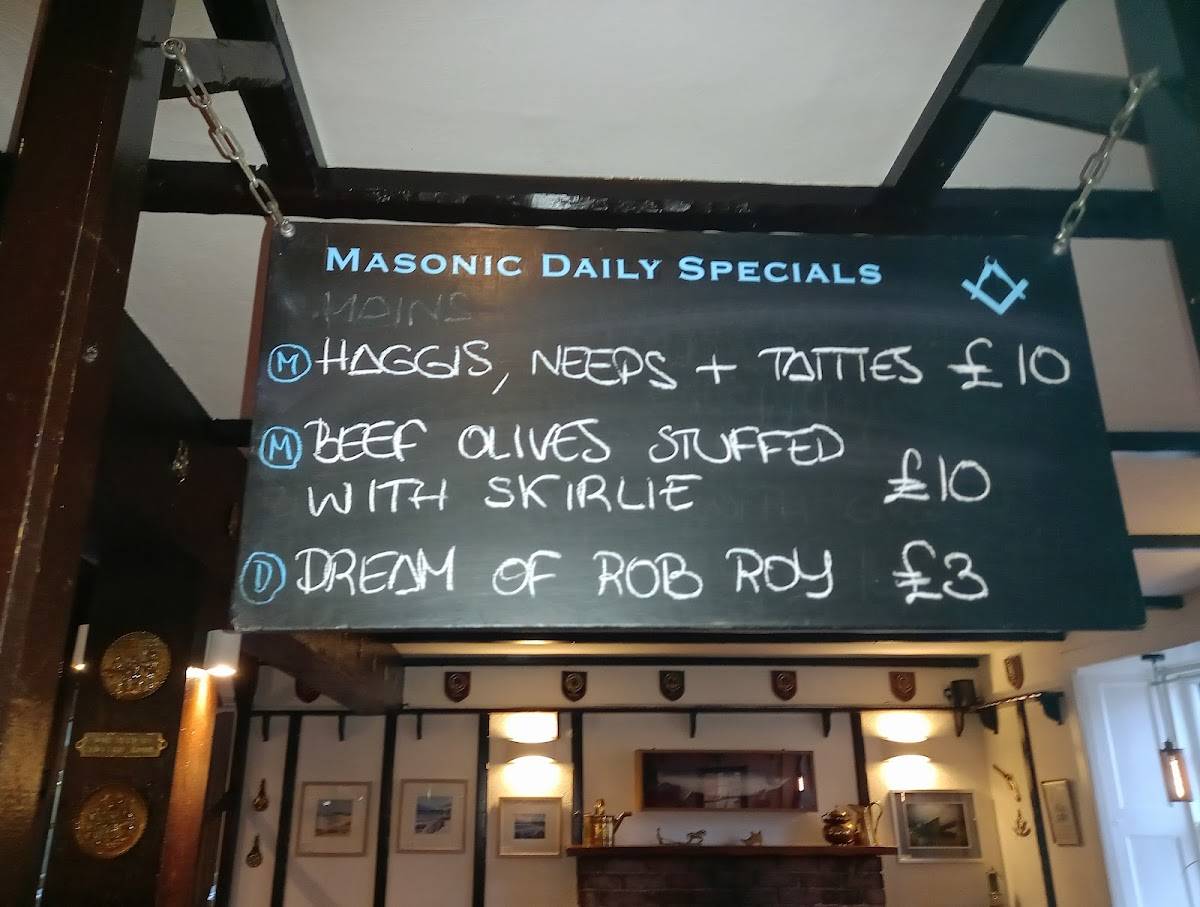 Masonic Daily Specials
MAINS
M HAGGIS, NEEPS + TATTIES £10
M BEEF OLIVES STUFFED
WITH SKIRLIE £10
D DREAM OF ROB ROY £3